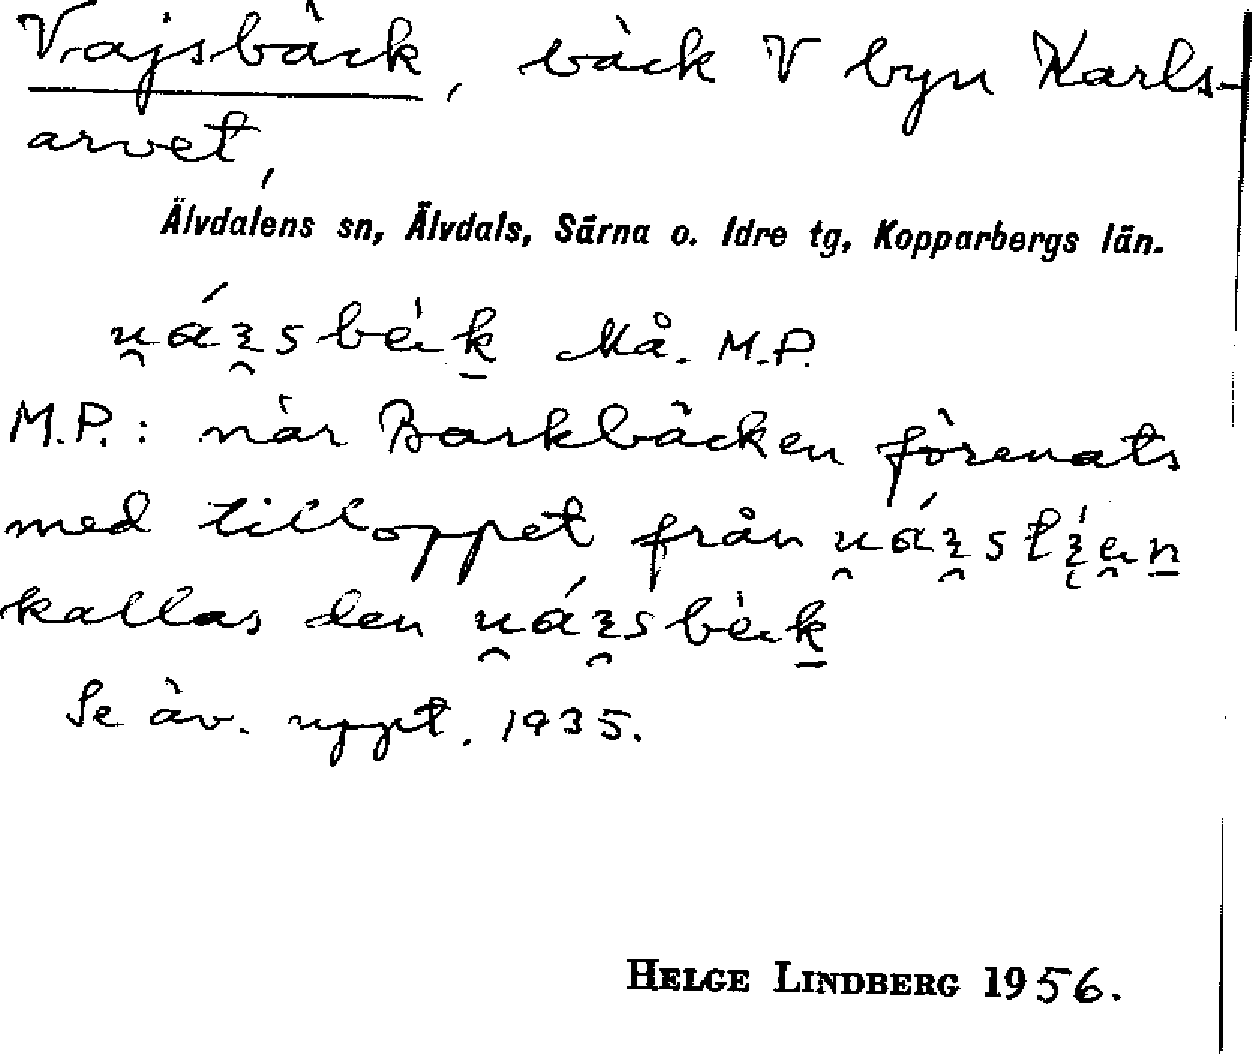 Vajsbäck, bäck V byn Karls-
arvet,
Älvdalens sn, Älvdals, Särna o. Idre tg, Kopparbergs län.
Må. M.P.
M.P.: när Barkbäcken förenats
med tilloppet från
kallas den
Se äv. uppt. 1935.
HELGE LINDBERG 1956.